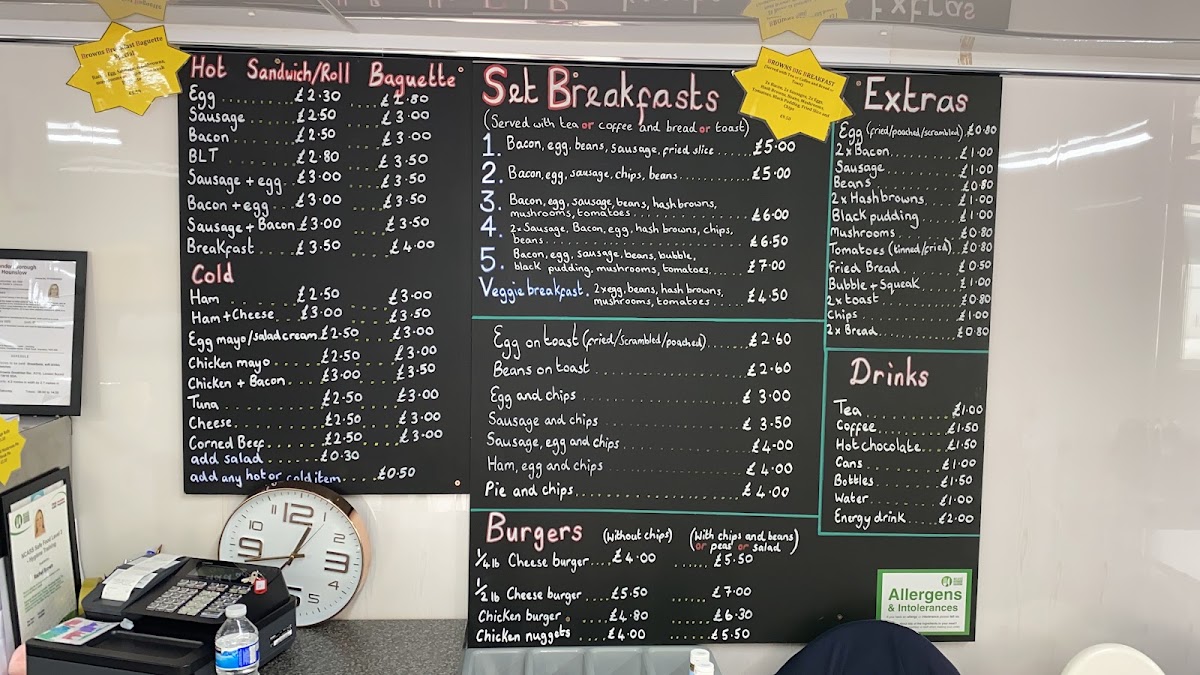 Extras
BROWNS BIG BREAKFAST
Browns Breakfast Baguette
Hot Sandwich/Roll Baguette
Egg ........ £2.30 .... £2.80
Sausage ....... £2.50 .... £3.00
Bacon ........ £2.50 .... £3.00
BLT ........ £2.80 .... £3.50
Sausage + egg .. £3.00 .... £3.50
Bacon + egg .... £3.00 .... £3.50
Sausage + Bacon £3.00 .... £3.50
Breakfast ..... £3.50 .... £4.00
Cold
Ham ........ £2.50 .... £3.00
Ham + Cheese .. £3.00 .... £3.50
Egg mayo/salad cream £2.50 ... £3.00
Chicken mayo ..... £2.50 .... £3.00
Chicken + Bacon .... £3.00 ... £3.50
Tuna ........ £2.50 .... £3.00
Cheese ........ £2.50 .... £3.00
Corned Beef ...... £2.50 .... £3.00
add salad ...... £0.30
add any hot or cold item .... £0.50
Set Breakfasts
(Served with tea or coffee and bread or toast)
1. Bacon, egg, beans, sausage, fried slice ...... £5.00
2. Bacon, egg, sausage, chips, beans ........ £5.00
3. Bacon, egg, sausage, beans, hash browns,
mushrooms, tomatoes ........ £6.00
4. 2x Sausage, Bacon, egg, hash browns, chips,
beans ........ £6.50
5. Bacon, egg, sausage, beans, bubble,
black pudding, mushrooms, tomatoes .... £7.00
Veggie breakfast. 2xegg, beans, hash browns,
mushrooms, tomatoes ..... £4.50
Egg on toast (fried/scrambled/poached) ..... £2.60
Beans on toast ........ £2.60
Egg and chips ........ £3.00
Sausage and chips ........ £3.50
Sausage, egg and chips ........ £4.00
Ham, egg and chips ........ £4.00
Pie and chips ........ £4.00
Burgers (without chips) (With chips and beans)
or peas or salad)
1/4 lb Cheese burger .... £4.00 ...... £5.50
1/2 lb Cheese burger .... £5.50 ...... £7.00
Chicken burger .... £4.80 ...... £6.30
Chicken nuggets .... £4.00 ...... £5.50
Extras
Egg (fried/poached/scrambled). £0.80
2x Bacon ........ £1.00
Sausage ........ £1.00
Beans ........ £0.80
2x Hash browns ..... £1.00
Black pudding ..... £1.00
Mushrooms ..... £0.80
Tomatoes (tinned/fried) .. £0.80
Fried Bread ...... £0.50
Bubble + Squeak ..... £1.00
2x toast ........ £0.80
Chips ........ £1.00
2x Bread ........ £0.80
Drinks
Tea ........ £1.00
Coffee ........ £1.50
Hot chocolate .... £1.50
Cans ........ £1.00
Bottles ........ £1.50
Water ........ £1.00
Energy drink .... £2.00
Allergens
& Intolerances
12
1
2
3
4
5
8
9
10